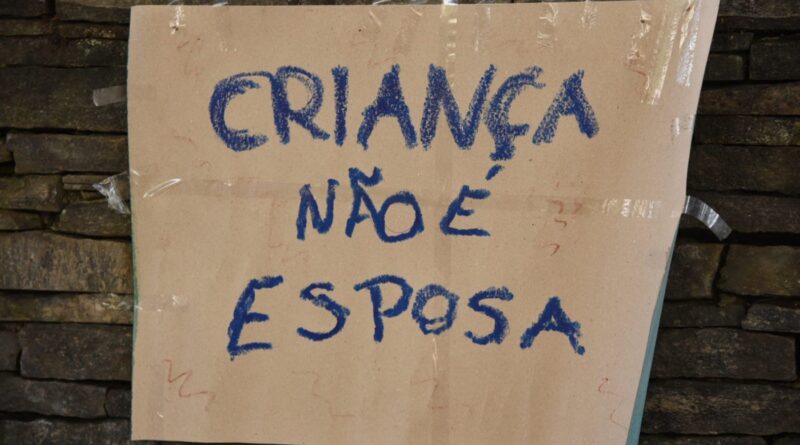 CRIANÇA
NÃO É
ESPOSA